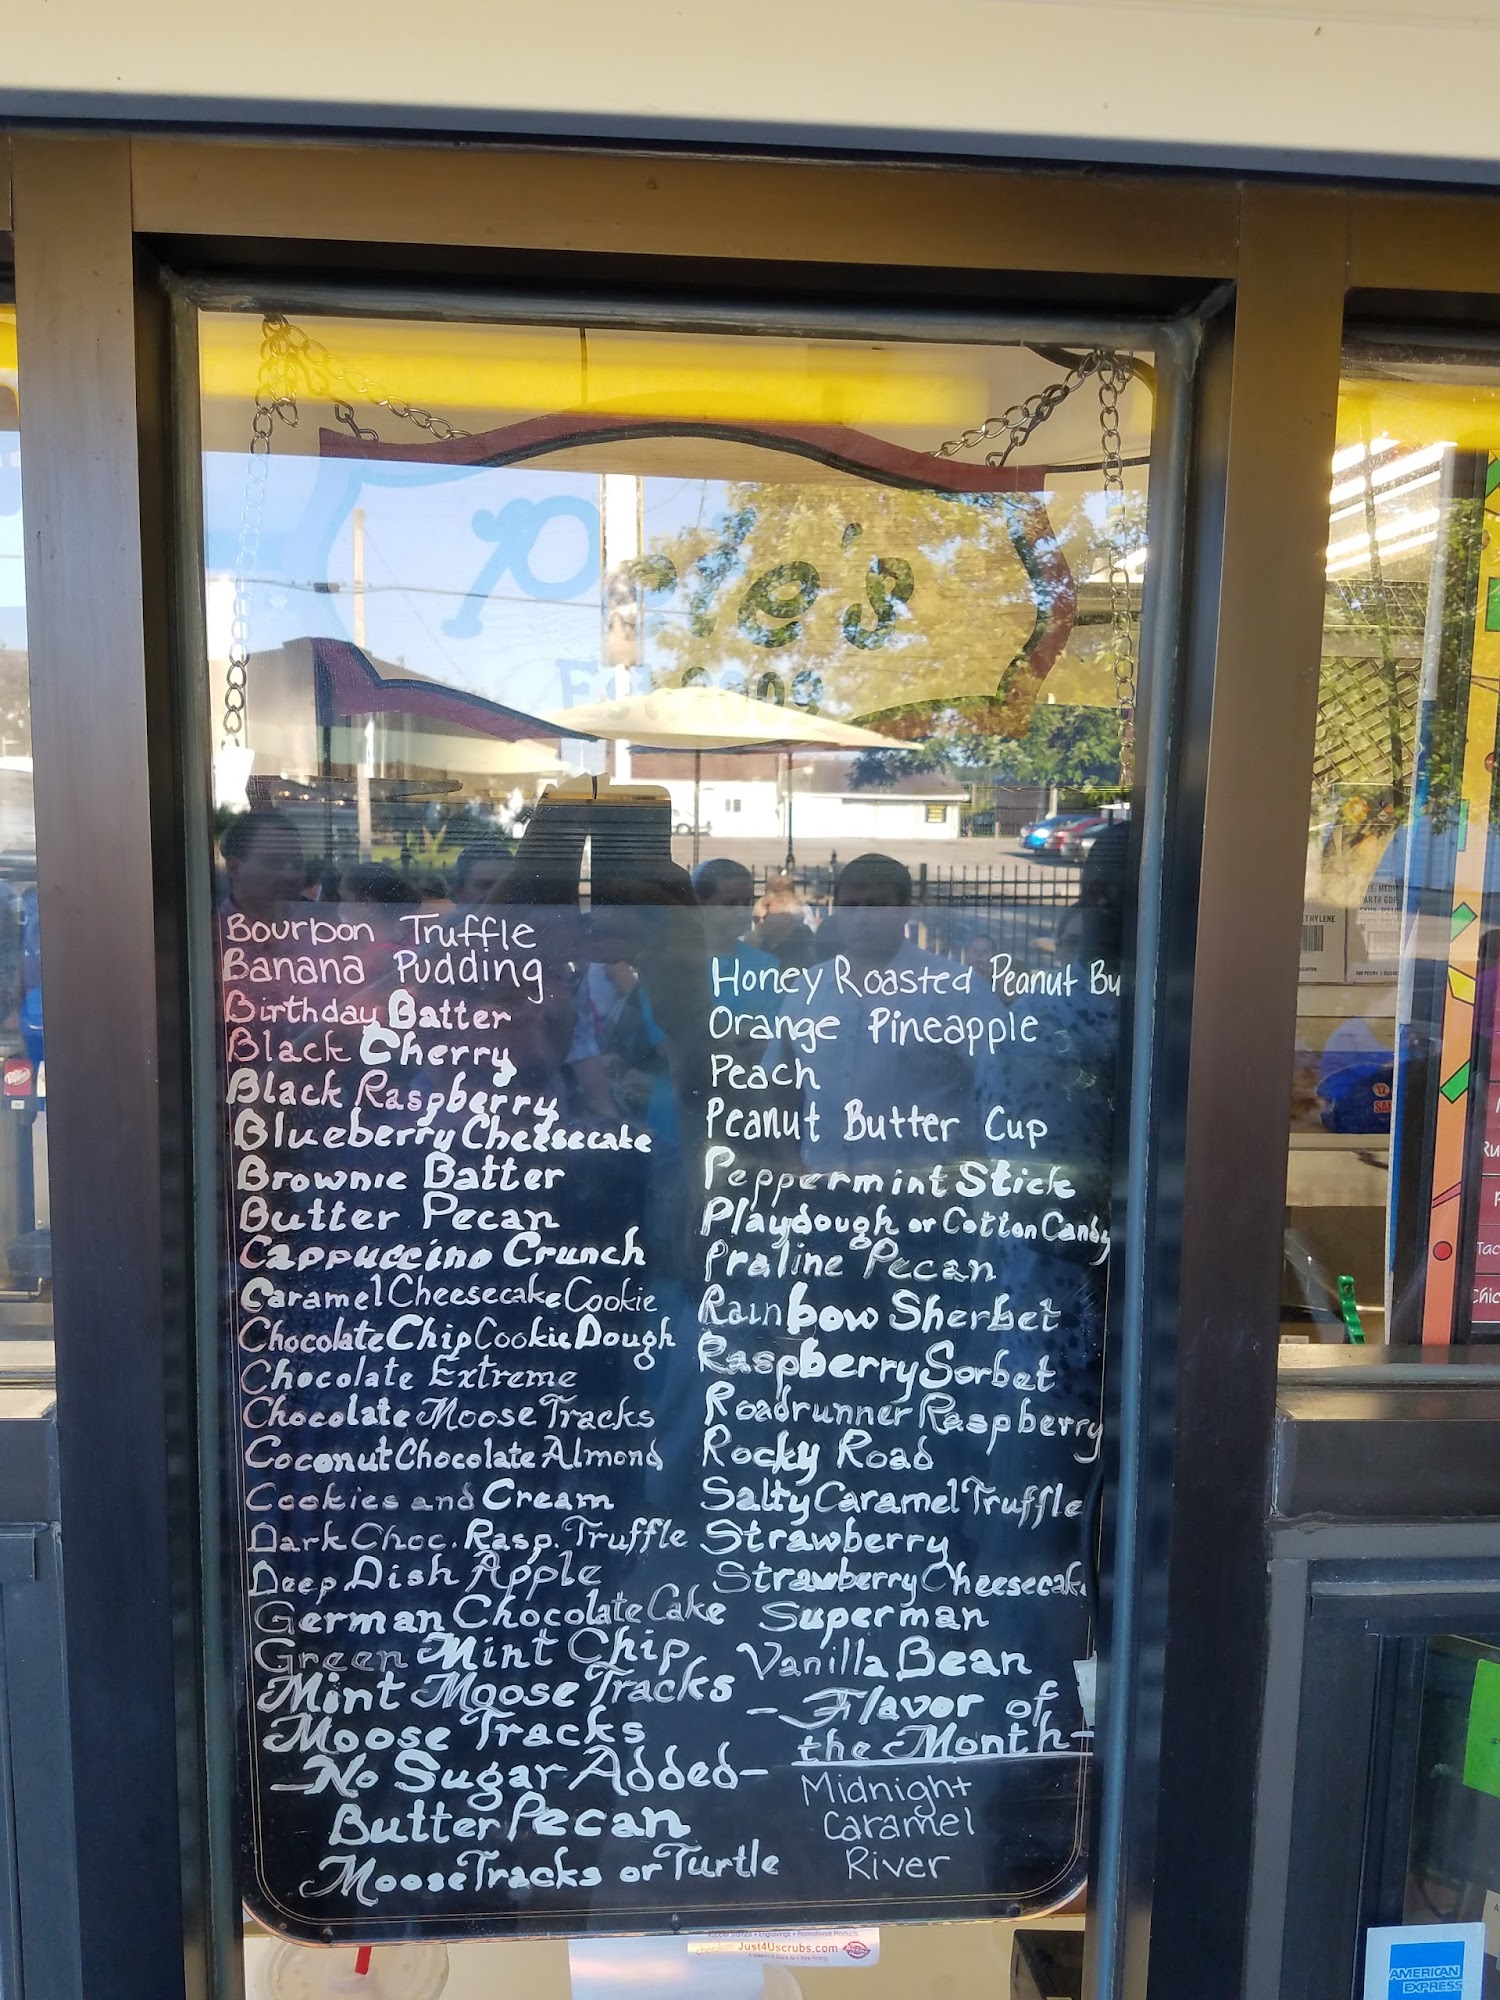 Est. 2009
Bourbon Truffle
Banana Pudding
Birthday Batter
Black Cherry
Black Raspberry
Blueberry Cheesecake
Brownie Batter
Butter Pecan
Cappuccino Crunch
Caramel Cheesecake Cookie
Chocolate Chip Cookie Dough
Chocolate Extreme
Chocolate Moose Tracks
Coconut Chocolate Almond
Cookies and Cream
Dark Choc. Rasp. Truffle
Deep Dish Apple
German Chocolate Cake
Green Mint Chip
Mint Moose Tracks
Moose Tracks
-No Sugar Added-
Butter Pecan
Moose Tracks or Turtle
Honey Roasted Peanut Bu
Orange Pineapple
Peach
Peanut Butter Cup
Peppermint Stick
Playdough or Cotton Candy
Praline Pecan
Rainbow Sherbet
Raspberry Sorbet
Roadrunner Raspberry
Rocky Road
Salty Caramel Truffle
Strawberry
Strawberry Cheesecake
Superman
Vanilla Bean
-Flavor of
the Month-
Midnight
Caramel
River
Just4Uscrubs.com
AMERICAN
EXPRESS